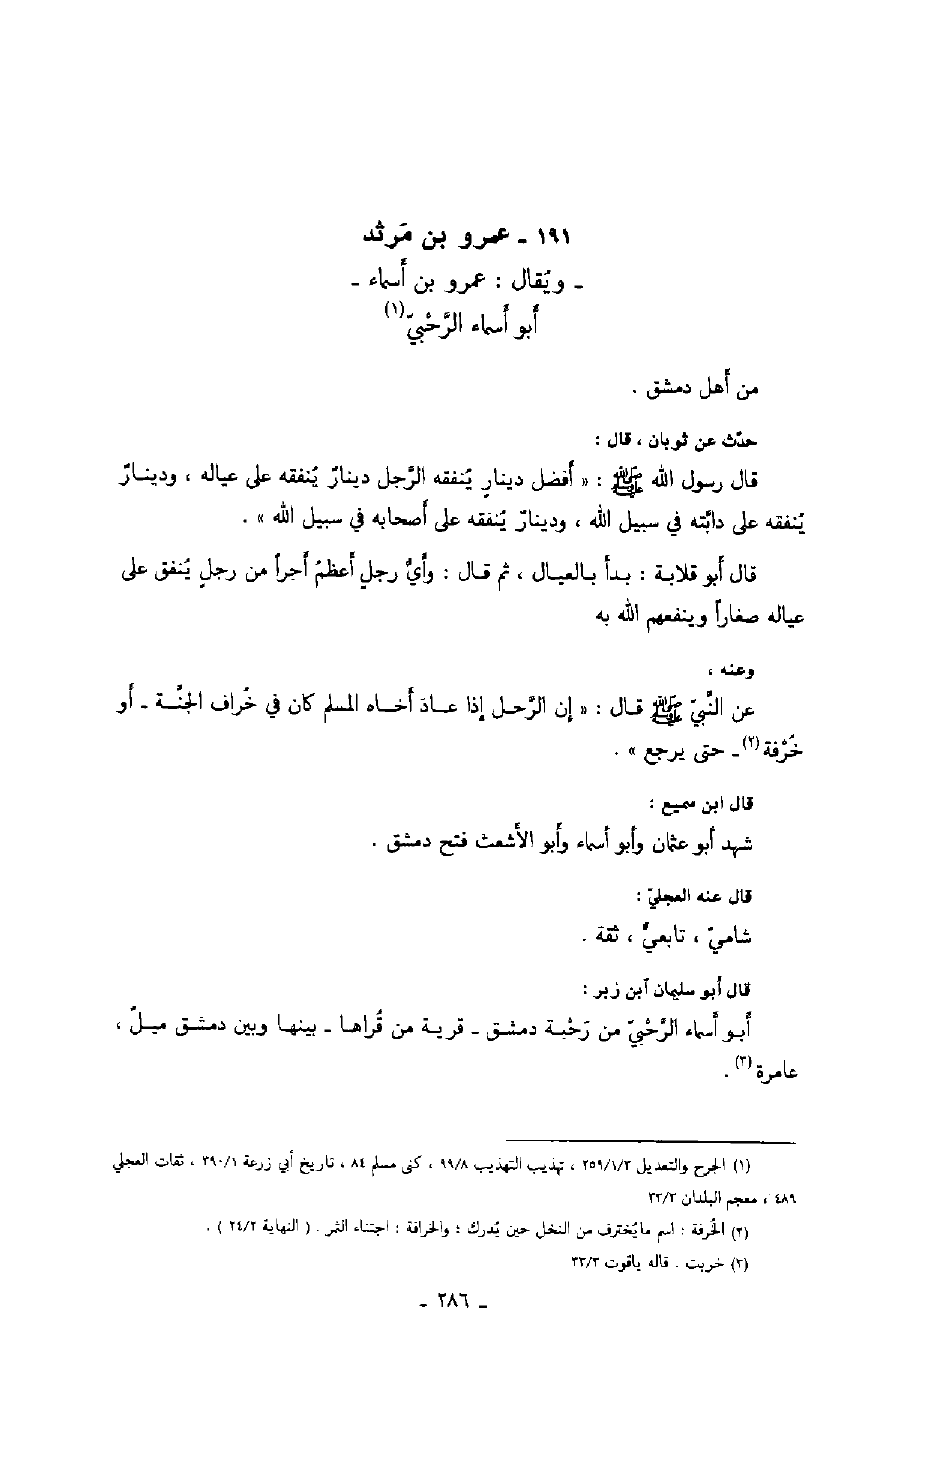 ١٩١ ـ عمرو بن مَرثد
ـ ويُقال : عمرو بن أَسماء ـ
أَبو أَسماء الرَّحْبيّ(١)
من أَهل دمشق .
حدّث عن ثوبان ، قال :
قال رسول الله ﷺ : « أَفضل دينارٍ يُنفقه الرَّجل دينارٌ يُنفقه على عياله ، ودينـارٌ
يُنفقه على دابَّته في سبيل الله ، ودينارٌ يُنفقه على أَصحابه في سبيل الله » .
قال أَبو قلابـة : بـدأ بـالعيـال ، ثم قـال : وأَيُّ رجلٍ أَعظمُ أَجراً من رجلٍ يُنفق على
عياله صغاراً وينفعهم الله به
وعنه ،
عن النَّبيّ ﷺ قـال : « إن الرَّجـل إذا عـادَ أَخـاه المسلم كان في خُراف الجنَّـة ـ أَو
خُرْفة(٢) ـ حتى يرجع » .
قال ابن سميع :
شهد أَبو عثمان وأَبو أَسماء وأَبو الأَشعث فتح دمشق .
قال عنه العجليّ :
شاميّ ، تابعيٌّ ، ثقة .
قال أَبو سليمان آبن زبر :
أَبـو أَسماء الرَّحْبيّ من رَحْبـة دمشـق ـ قريـة من قُراهـا ـ بينهـا وبين دمشـق ميـلٌ ،
عامرة(٣) .
(١) الجرح والتعديل ٢٥٩/١/٣ ، تهذيب التهذيب ٩٩/٨ ، كنى مسلم ٨٤ ، تاريخ أبي زرعة ٣٩٠/١ ، ثقات العجلي
٤٨٩ ، معجم البلدان ٣٣/٣
(٢) الخُرفة : اسم مايُخترف من النخل حين يُدرك ؛ والخرافة : اجتناء الثمر . ( النهاية ٢٤/٢ ) .
(٣) خربت . قاله ياقوت ٣٣/٣
ـ ٢٨٦ ـ